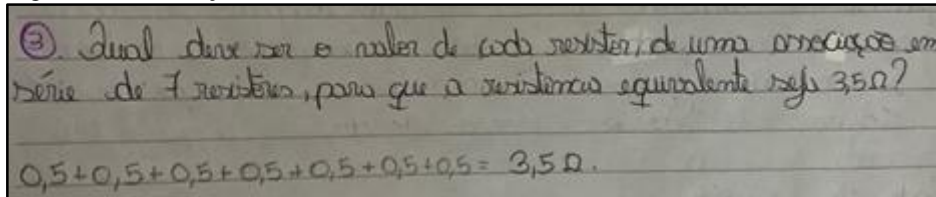 ③. Qual deve ser o valor de cada resistor, de uma associação em
série de 7 resistores, para que a resistência equivalente seja 3,5Ω?
0,5+0,5+0,5+0,5+0,5+0,5+0,5= 3,5Ω.